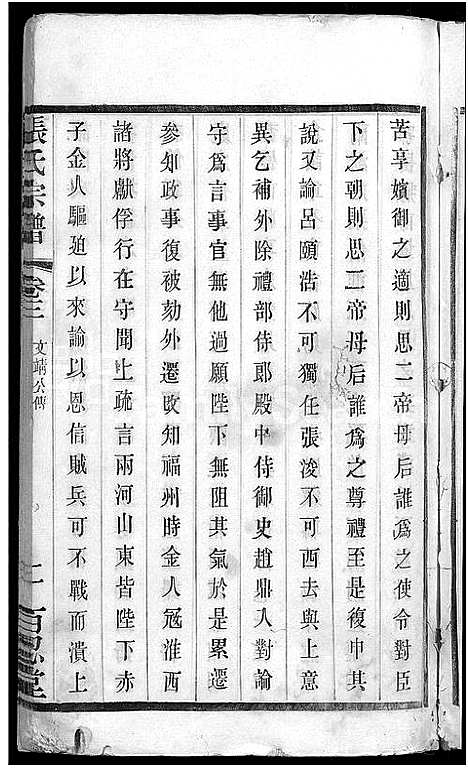 苦享嬪御之適則思二帝母后誰爲之使令對臣
下之朝則思二帝母后誰爲之尊禮至是復申其
說又論呂頤浩不可獨任張浚不可西去與上意
異乞補外除禮部侍郎殿中侍御史趙鼎入對論
守爲言事官無他過願陛下無阻其氣於是累遷
參知政事復被劾外遷改知福州時金人冦淮西
諸將獻俘行在守聞上疏言兩河山東皆陛下赤
子金人驅廹以來諭以恩信賊兵可不戰而潰上
張氏宗譜 卷三 文靖公傳 二 百忍堂